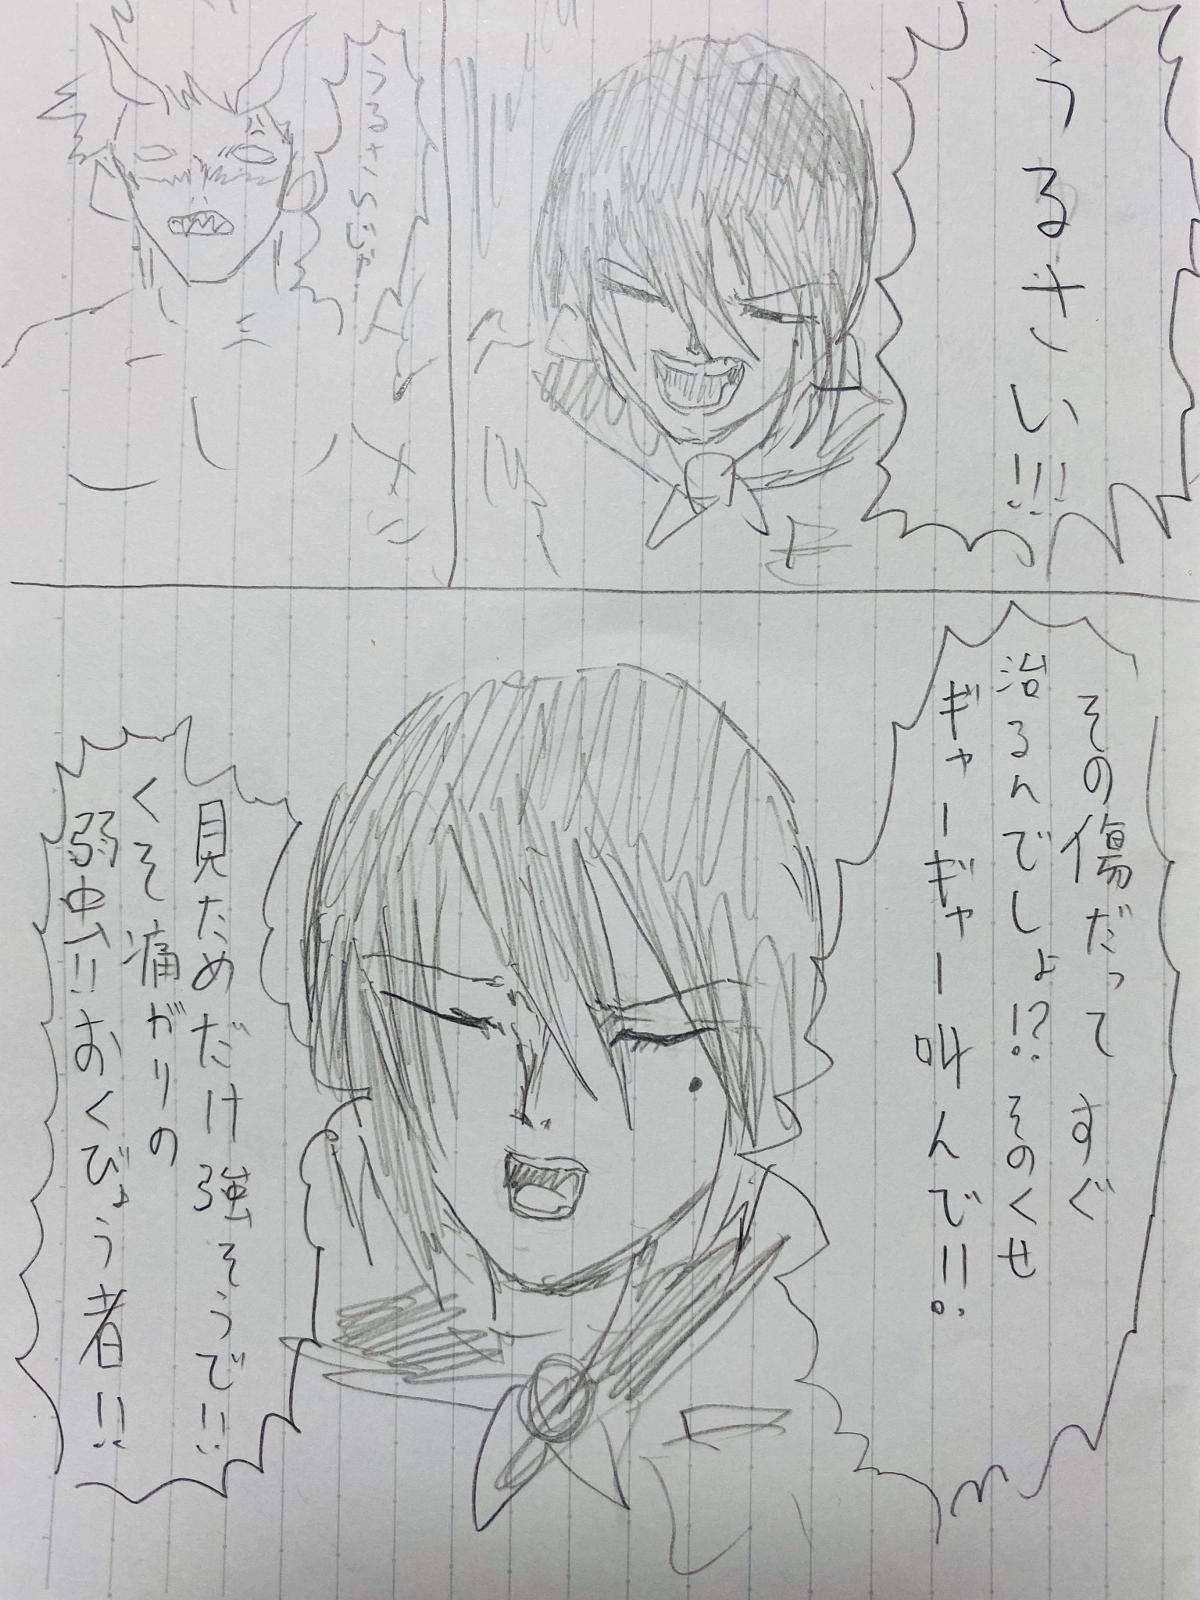 うるさい!!!
うるさいじゃ
その傷だって すぐ
治るんでしょ!? そのくせ
ギャーギャー叫んで!!
見ためだけ強そうで!!
くそ痛がりの
弱虫!! おくびょう者!!